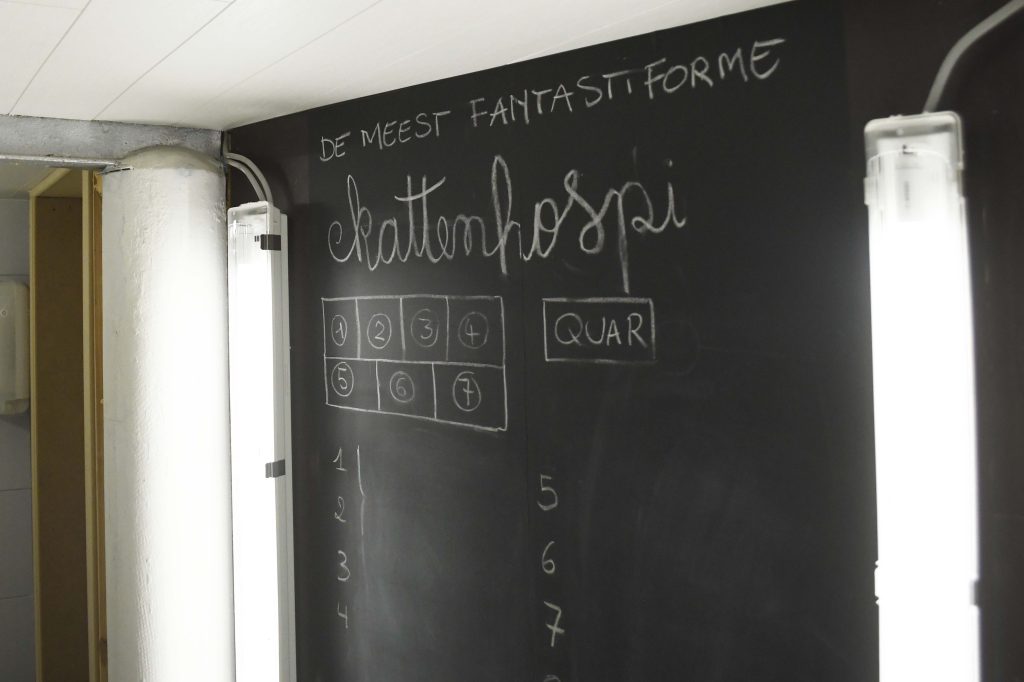 DE MEEST FANTASTIFORME
kattenhospi
1 2 3 4
5 6 7
QUAR
1
2
3
4
5
6
7